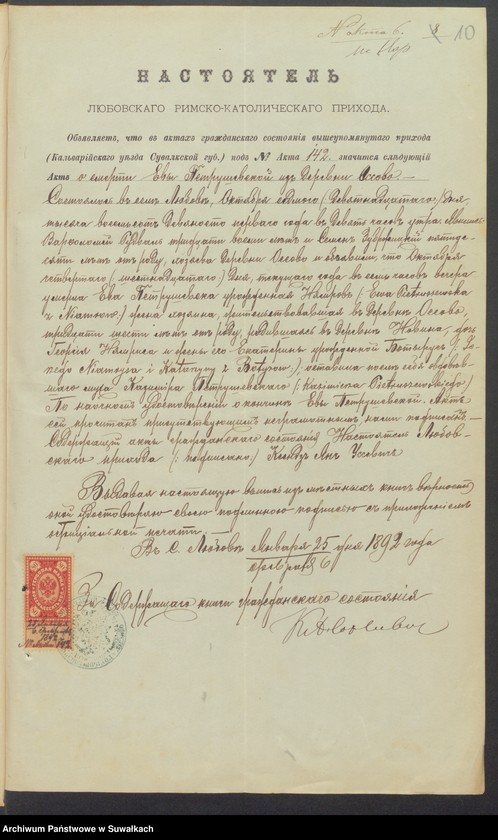 N акта 6.
10
НАСТОЯТЕЛЬ
ЛЮБОВСКАГО РИМСКО-КАТОЛИЧЕСКАГО ПРИХОДА.
Объявляетъ, что въ актахъ гражданскаго состоянія вышеупомянутаго прихода
(Кальварійскаго уѣзда Сувалкской губ.) подъ № Акта 142. значится слѣдующій
Актъ о смерти Евы Петрушевской изъ Деревни Оссово.—
Состоялось въ селѣ Любовѣ, Октября седьмаго /: Девятнадцатаго:/ Дня,
тысяча восемьсотъ Девяносто перваго года въ Девять часовъ утра. Явились
Варѳоломей тридцати восьми лѣтъ и Семенъ пятиде-
сяти лѣтъ отъ роду, хозяева Деревни Оссово и объявили, что Октября
четвертаго /: шестнадцатаго:/ Дня, текущаго года въ семь часовъ вечера
умерла Ева Петрушевска урожденная /: Ewa Pietruszewska
z :/ жена хозяина, жительствовавшая въ Деревнѣ Оссово,
тридцати шести лѣтъ отъ роду, родившаяся въ Деревнѣ Новинка, дочь
Георгія и жены его Екатерины урожденной /:
i Katarzyny z :/, оставила послѣ себя овдовѣв-
шаго мужа Казиміра Петрушевскаго /: Kazimierza Pietruszewskiego:/
По наочномъ удостовѣреніи о кончинѣ Евы Петрушевской. Актъ
сей прочитанъ присутствующимъ неграмотнымъ нами подписанъ —
Содержащій акты гражданскаго состоянія Настоятель Любов-
скаго прихода /: подписано:/ Ксендзъ Янъ Уссевичъ
Выдавая настоящую выпись изъ мѣстныхъ книгъ вѣрность
оной удостовѣряю своею подлинною подписью съ приложеніемъ
оффиціальной печати.
Въ С. Любовѣ Января 25 дня 1892 года
февраля 6
За Содержащаго книги гражданскаго состоянія
1892
Archiwum Państwowe w Suwałkach